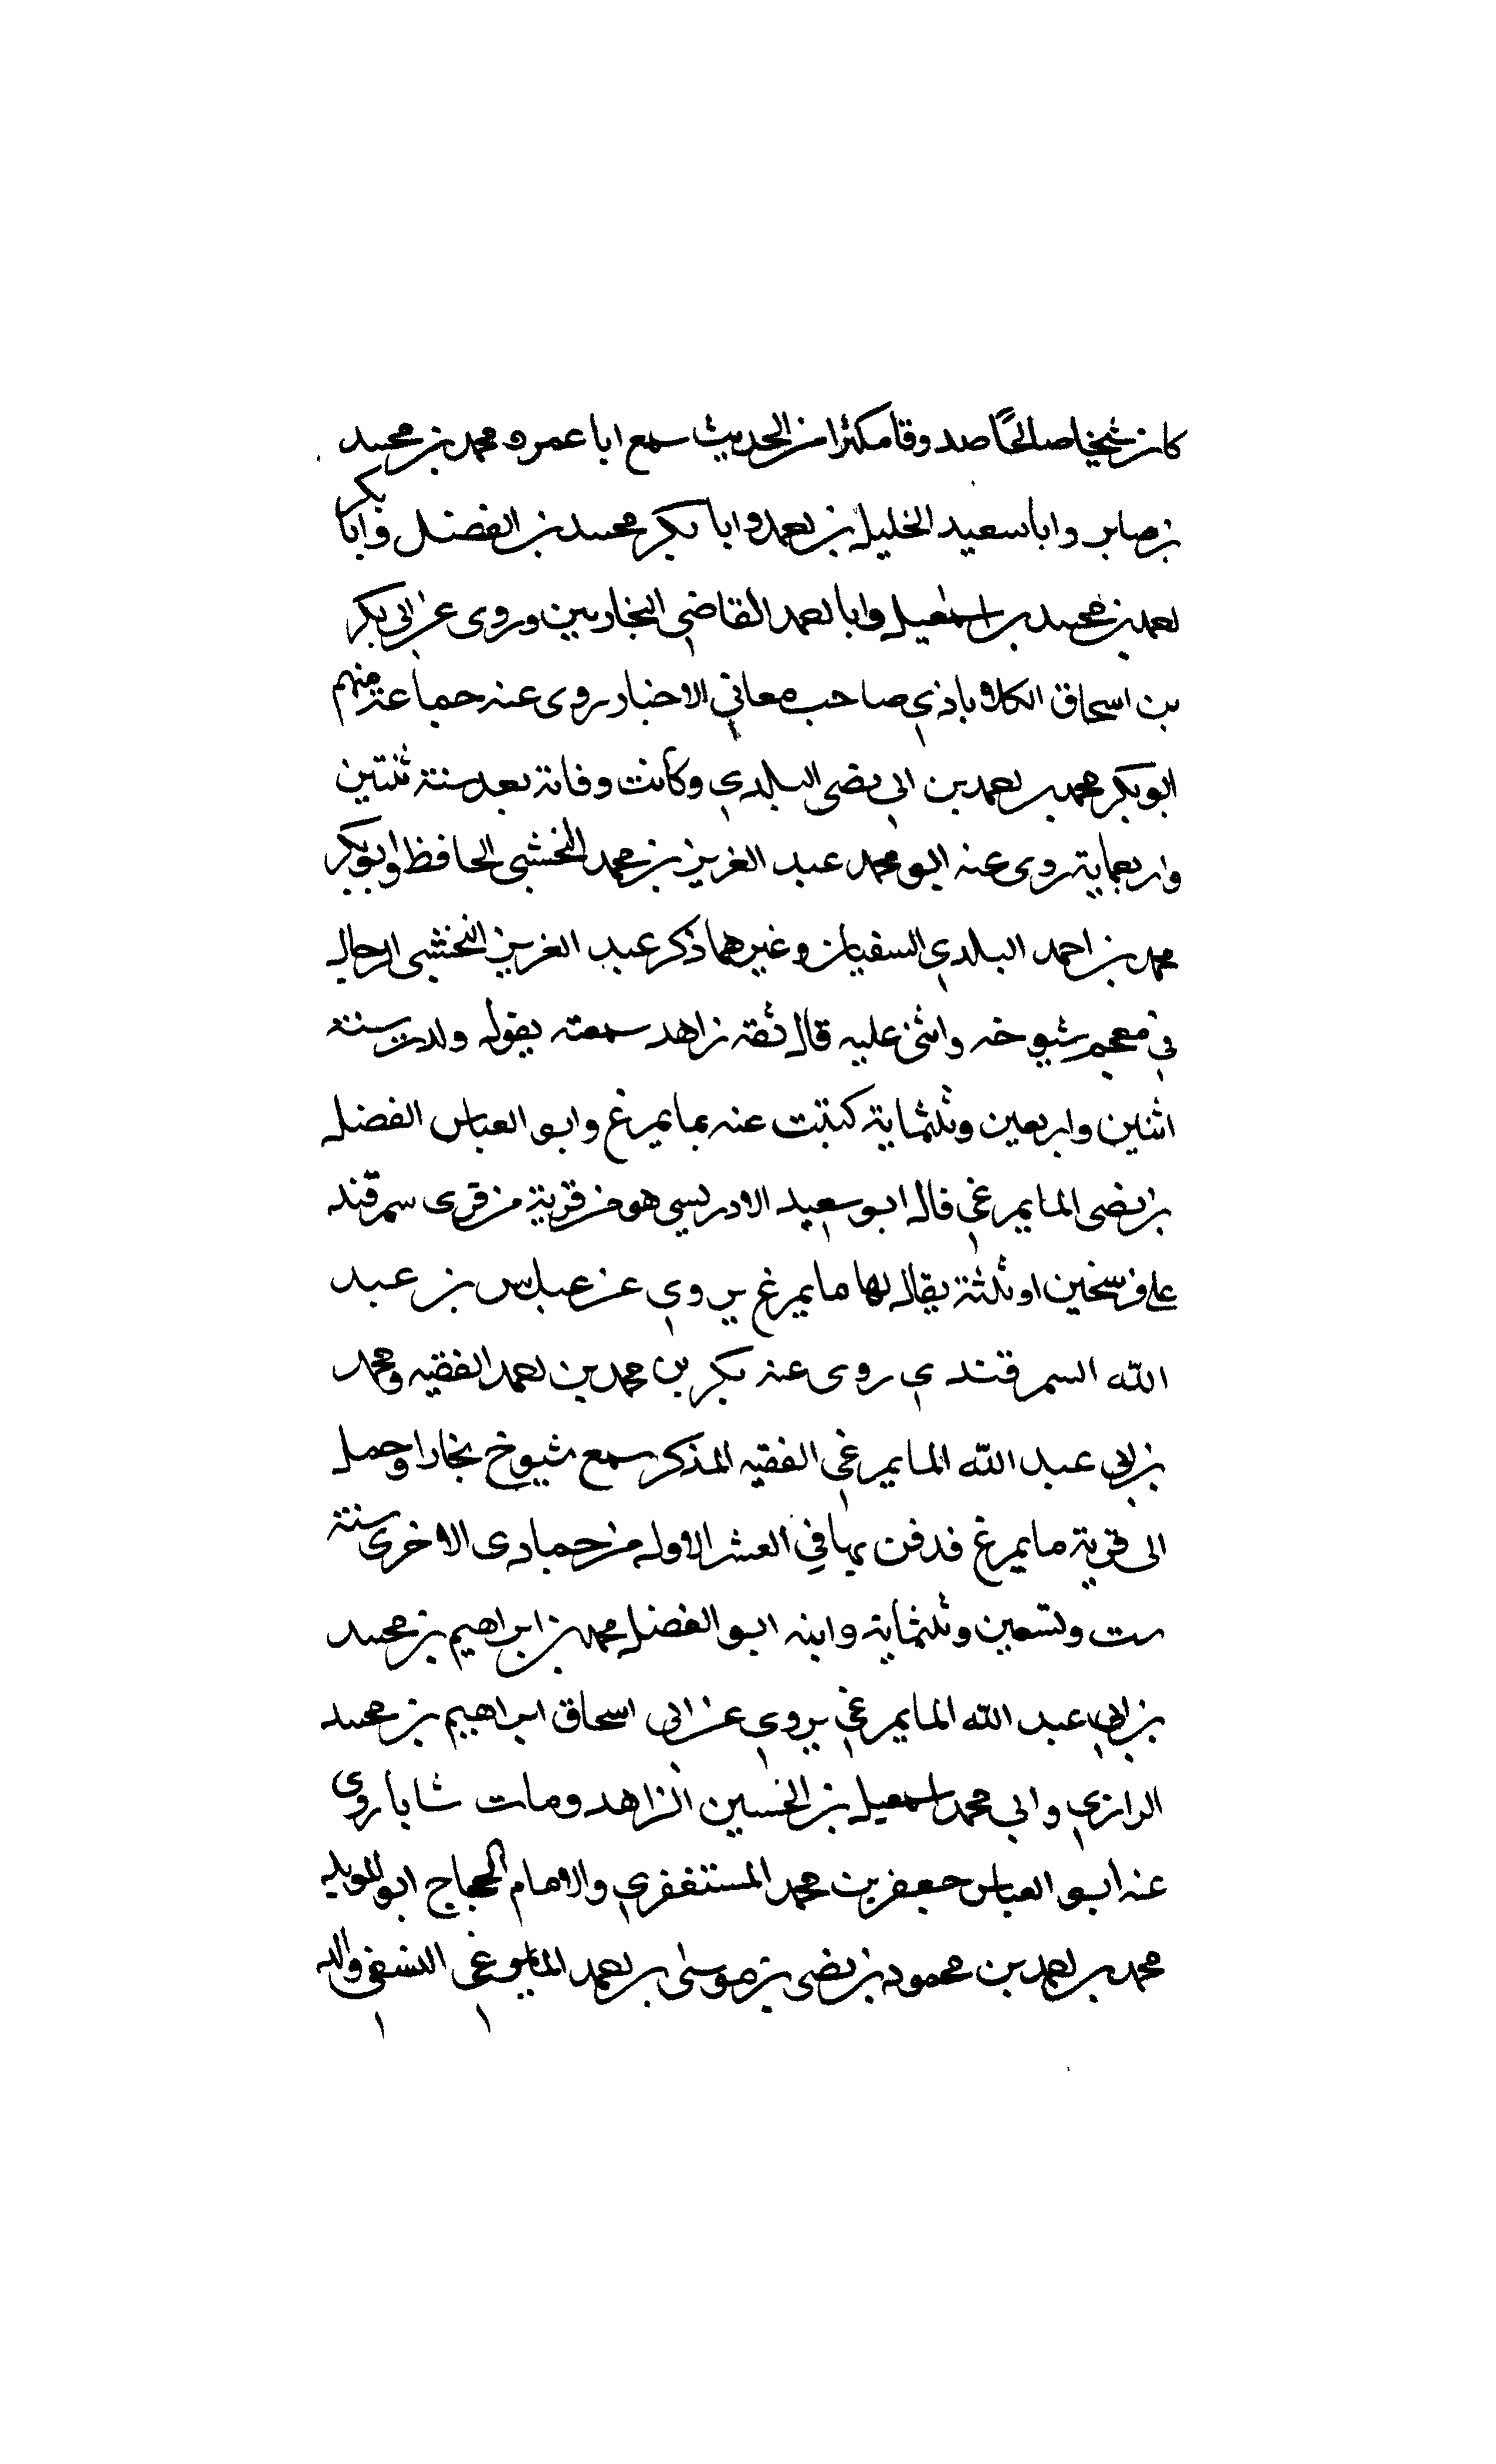 كان شيخا صالحًا صدوقا مكثرا من الحديث سمع ابا عمرو محمد بن محمد
بن صابر وابا سعيد الخليل بن احمد وابا بكر محمد بن الفضل وابا بكر
احمد بن محمد بن اسمعيل وابا احمد القاضي البخاريين وروى عن ابي بكر
بن اسحاق الكلاباذي صاحب معاني الاخبار روى عنه جماعة منهم
ابو بكر محمد بن احمد بن ابي نصر البلدي وكانت وفاته بعد سنة ثنتين
واربعماية روى عنه ابو محمد عبد العزيز بن محمد النخشبي الحافظ وابو بكر
محمد بن احمد البلدي النسفيان وغيرهما ذكر عبد العزيز النخشبي الرحال
في معجم شيوخه واثنى عليه قال ثقة زاهد سمعته يقول ولدت سنة
اثنين واربعين وثلثماية كتبت عنه بمايمرغ وابو العباس الفضل
بن نصر المايمرغي قال ابو سعيد الادريسي هو من قرية من قرى سمرقند
على فرسخين او ثلثة يقال لها مايمرغ يروي عن عباس بن عبد
الله السمرقندي روى عنه بكر بن محمد بن احمد الفقيه ومحمد
بن ابي عبد الله المايمرغي الفقيه المذكر سمع شيوخ بخارا وحمل
الى قرية مايمرغ فدفن بها في العشر الاول من جمادى الاخرى سنة
ست وتسعين وثلثماية وابنه ابو الفضل محمد بن ابراهيم بن محمد
بن ابي عبد الله المايمرغي يروي عن ابي اسحاق ابراهيم بن محمد
الرازي وابي محمد اسمعيل بن الحسين الزاهد ومات شابا روى
عنه ابو العباس جعفر بن محمد المستغفري والامام الحجاج ابو المويد
محمد بن احمد بن محمود بن نصر بن موسى بن احمد المايمرغي النسفي والد